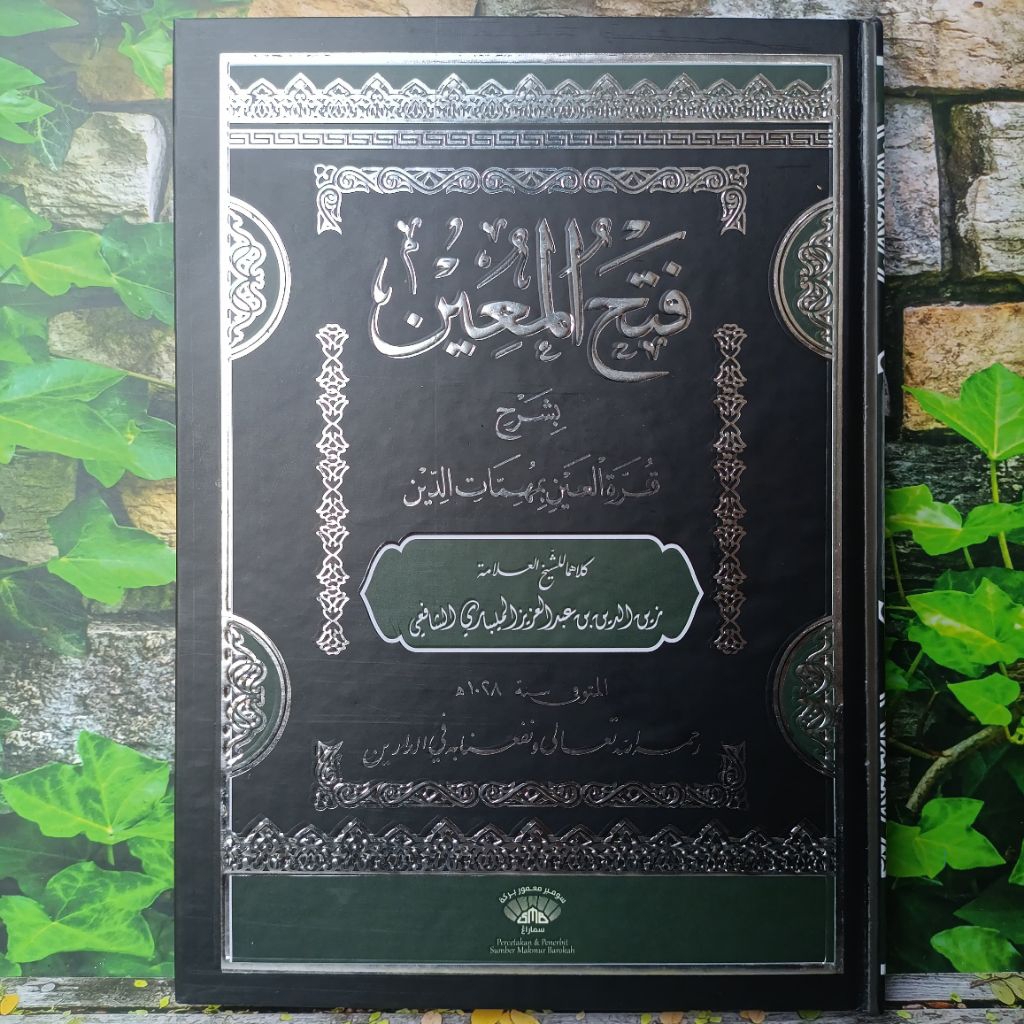 فَتْحُ الْمُعِيْنِ
بِشَرْحِ
قُرَّةِ الْعَيْنِ بِمُهِمَّاتِ الدِّيْنِ
كلاهما للشيخ العلامة
زين الدين بن عبد العزيز المليباري الشافعي
المتوفى سنة ١٠٢٨هـ
رحمه الله تعالى ونفعنا به في الدارين
سومبر معمور بركة
SMB
سماراڠ
Percetakan & Penerbit
Sumber Makmur Barokah